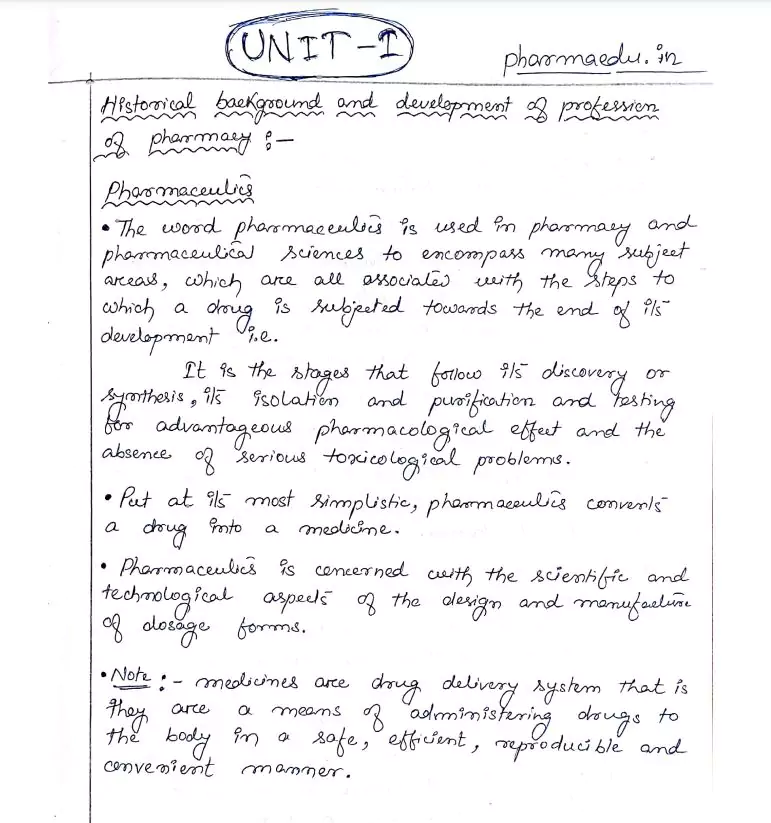 UNIT-I
pharmaedu.in
Historical background and development of profession
of pharmacy :-
Pharmaceutics
• The word pharmaceutics is used in pharmacy and
pharmaceutical sciences to encompass many subject
areas, which are all associated with the steps to
which a drug is subjected towards the end of its
development i.e.
It is the stages that follow its discovery or
synthesis, its isolation and purification and testing
for advantageous pharmacological effect and the
absence of serious toxicological problems.
• Put at its most simplistic, pharmaceutics converts
a drug into a medicine.
• Pharmaceutics is concerned with the scientific and
technological aspects of the design and manufacture
of dosage forms.
• Note :- medicines are drug delivery system that is
they are a means of administering drugs to
the body in a safe, efficient, reproducible and
convenient manner.